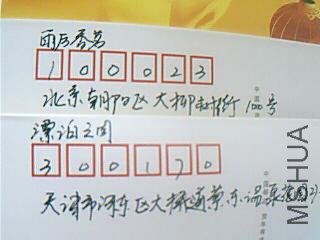 雨后香茗
100023
北京朝阳区大柳树街100号
漂泊之间
300170
天津市河东区大桥道
MSHUA